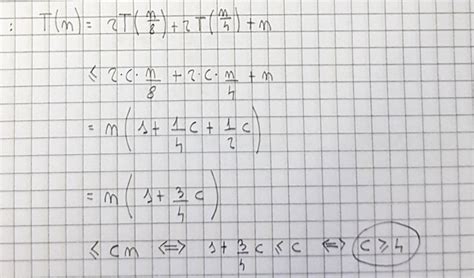 : T(n) = 2T(n/8) + 2T(n/4) + n
≤ 2·c·n/8 + 2·c·n/4 + n
= n(1 + 1/4 c + 1/2 c)
= n(1 + 3/4 c)
≤ cn ⟺ 1 + 3/4 c ≤ c ⟺ c ≥ 4